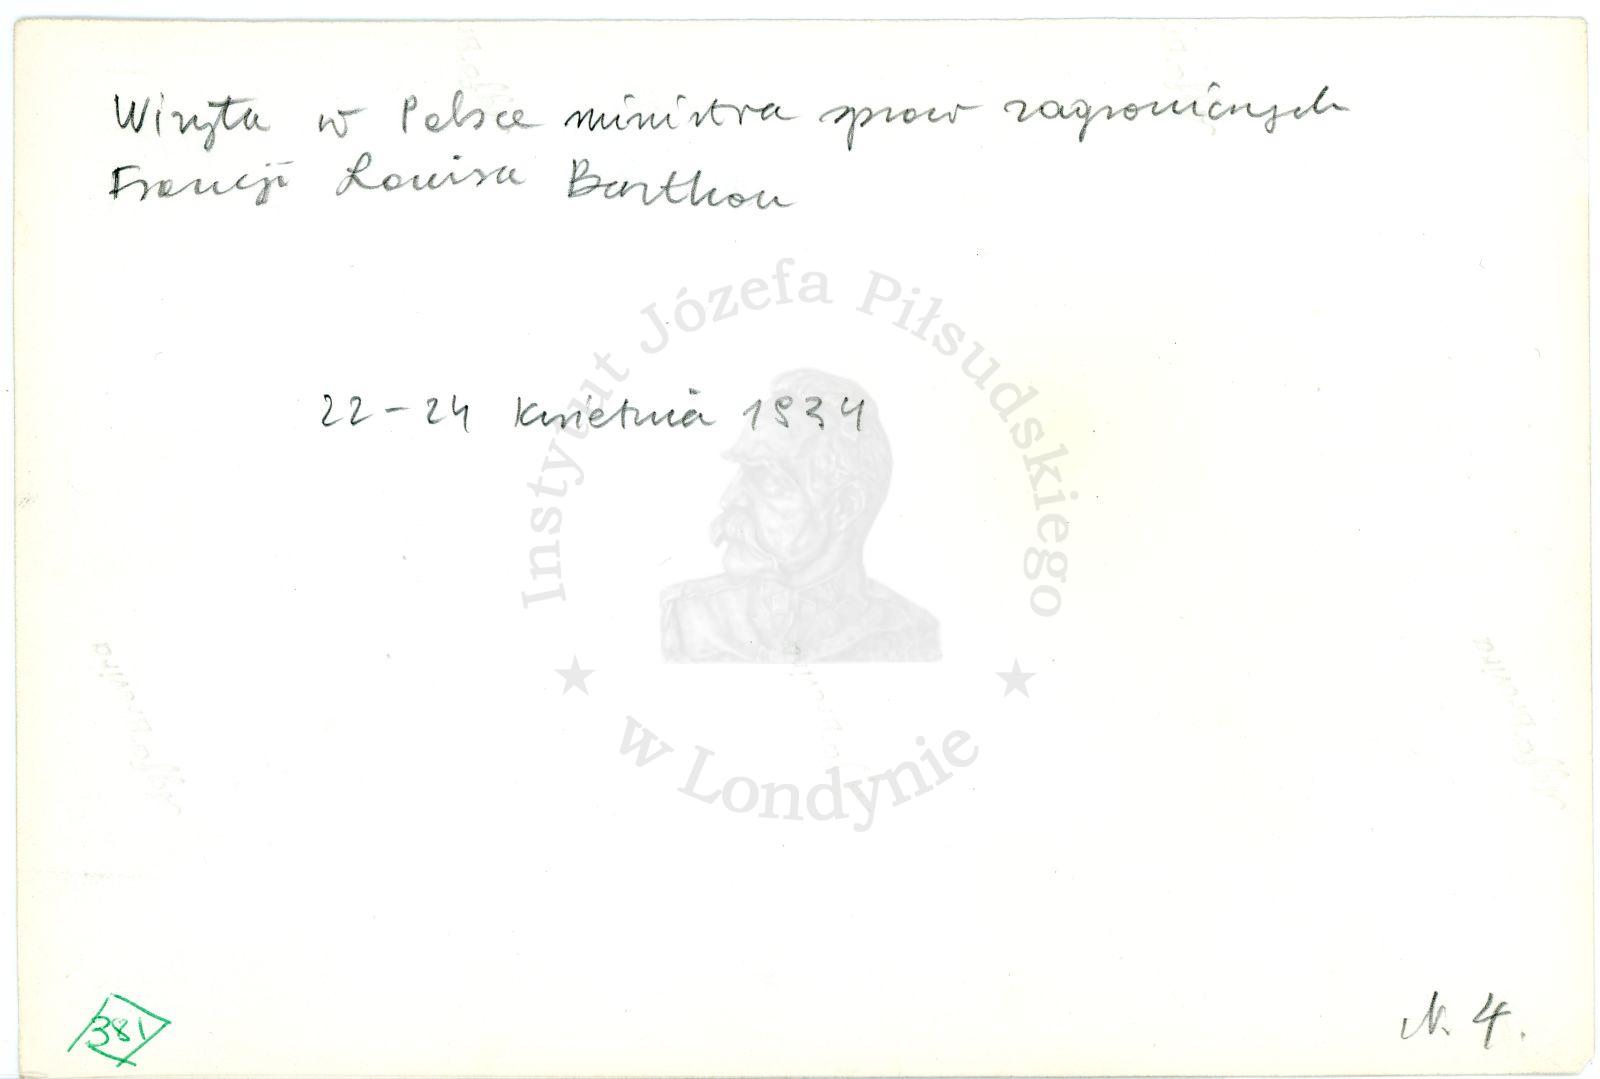 Wizyta w Polsce ministra spraw zagranicznych
Francji Louisa Barthou
22-24 kwietnia 1934
Instytut Józefa Piłsudskiego
w Londynie
381
N. 4.